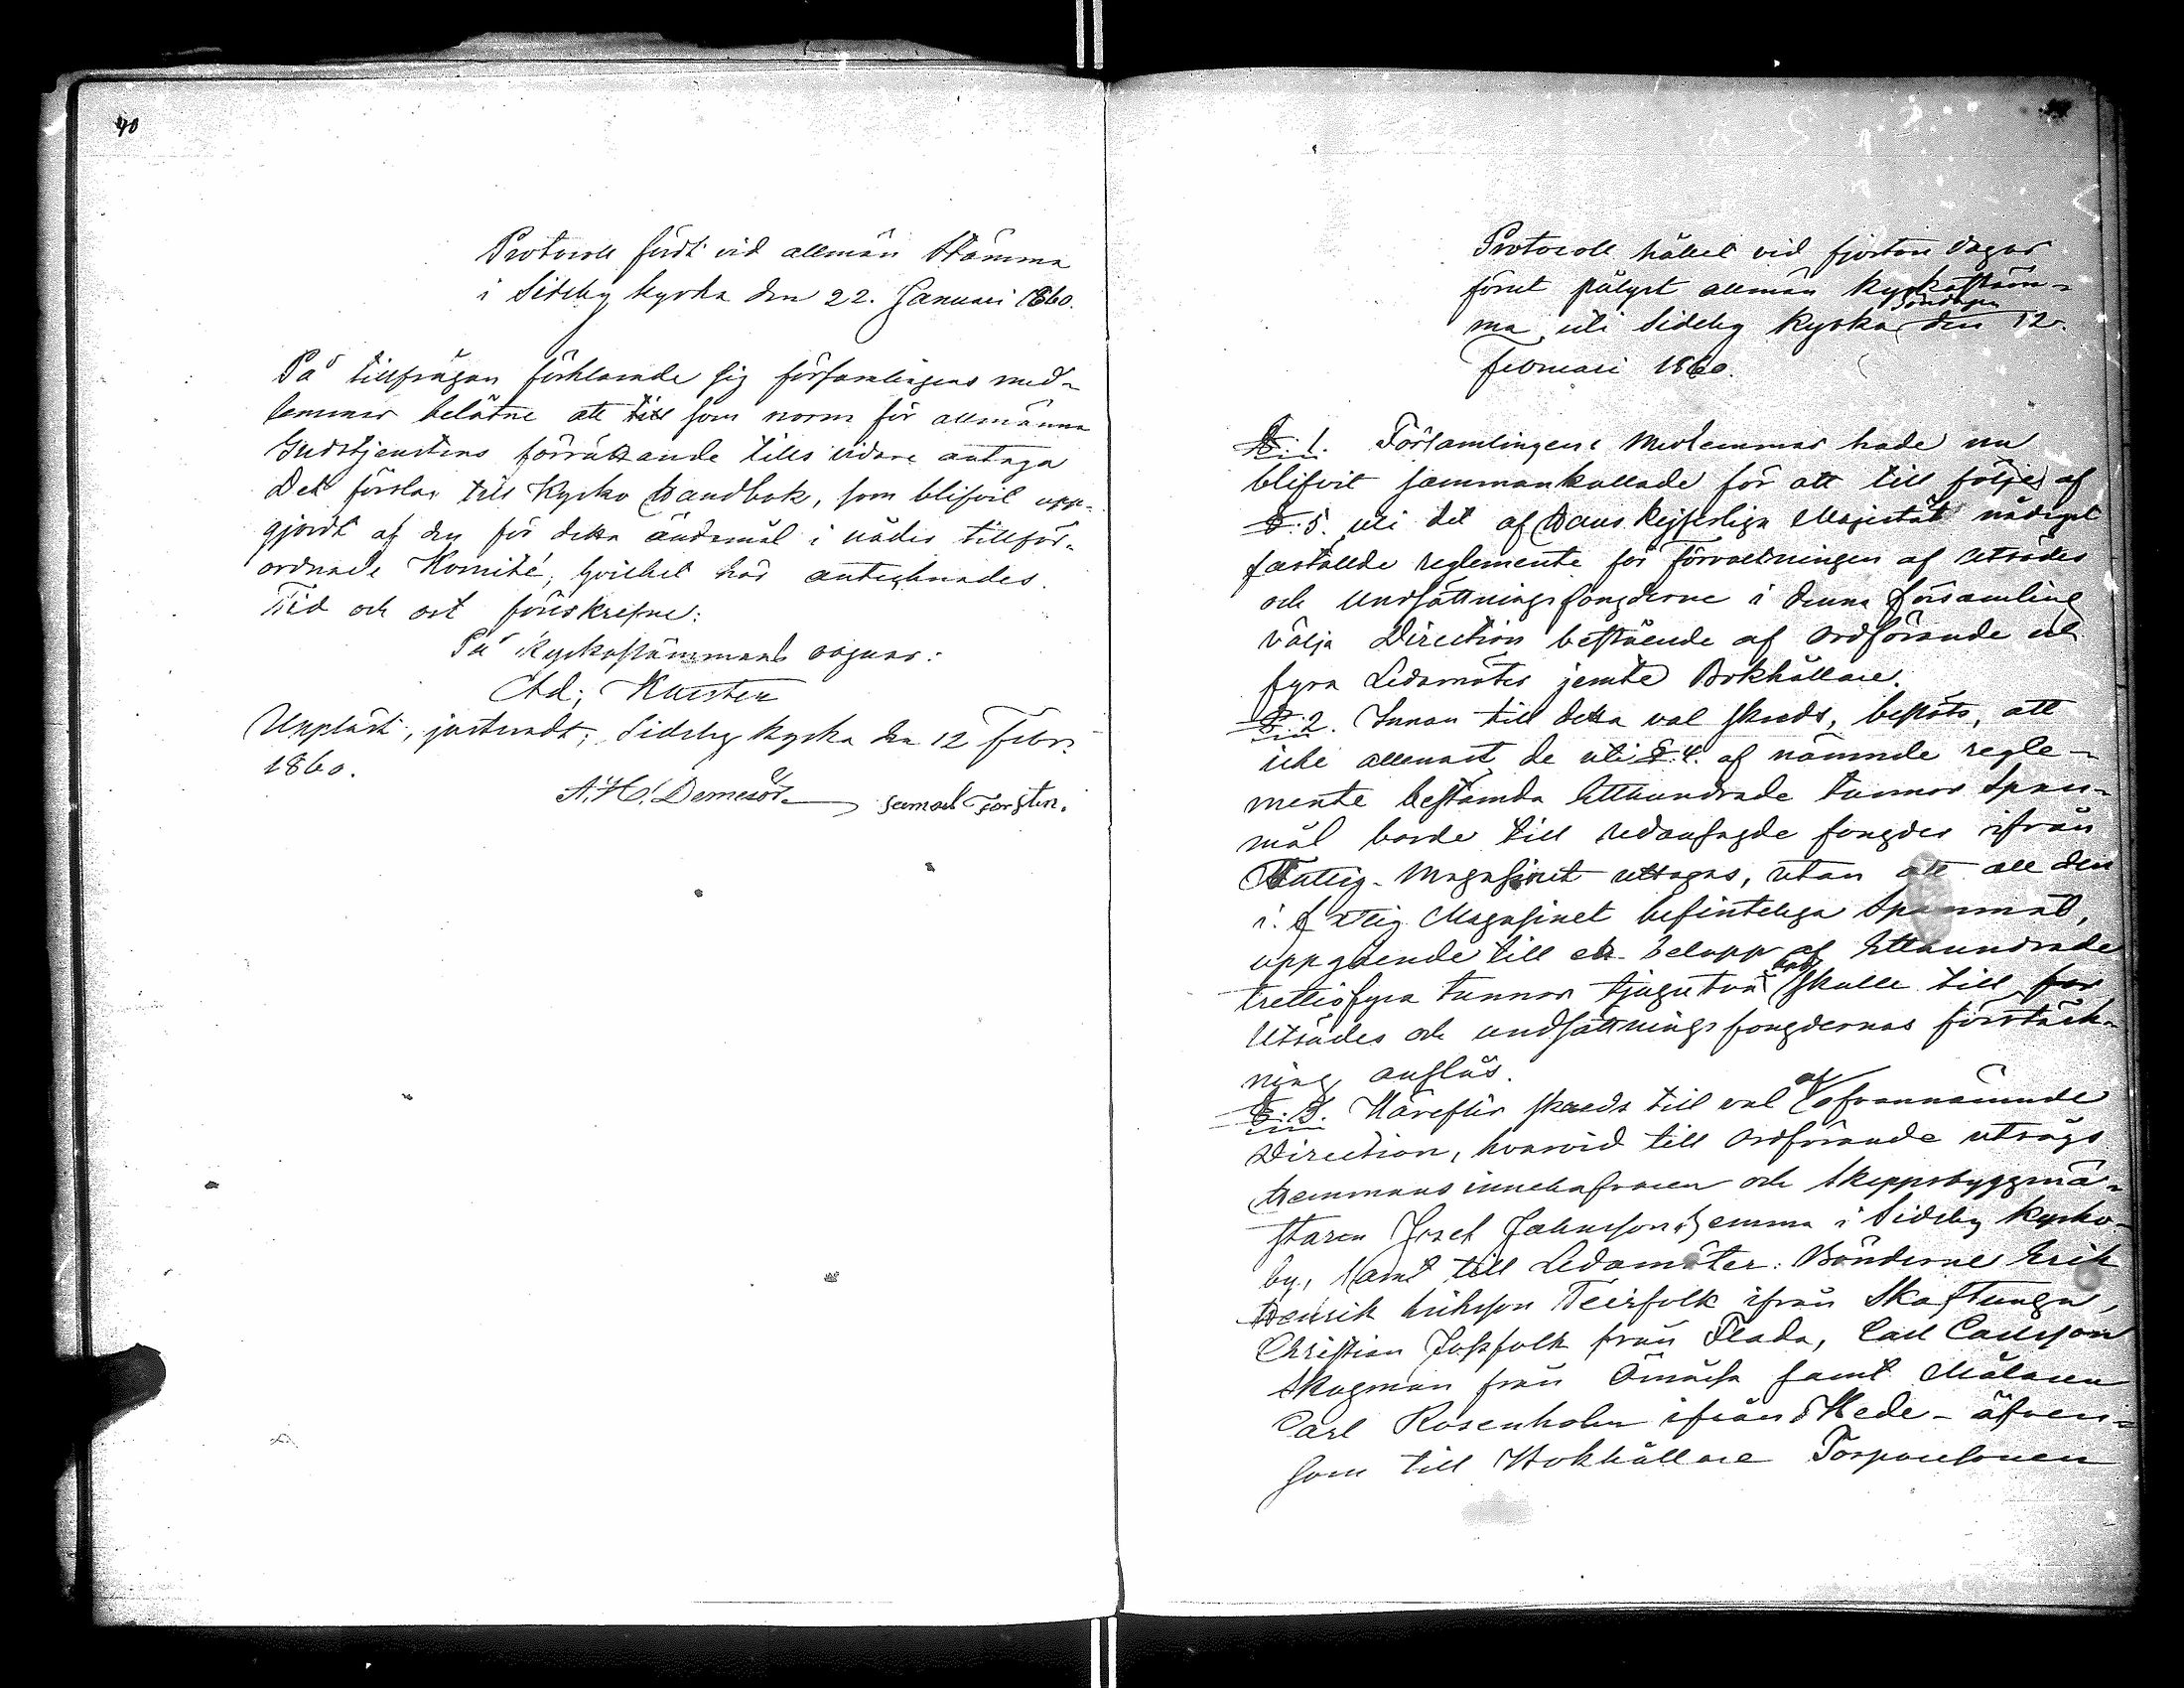 40
Protocoll fördt vid allmän Stämma
i Sideby kyrka den 22. Januari 1860.
På tillfrågan förklarade sig församlingens med-
lemmar belåtne att till som norm för allmänna
Gudstjenstens förrättande tills vidare antaga
Det förslag till Kyrko Handbok, som blifvit upp-
gjordt af den för detta ändamål i nåder tillför-
ordnade Komité, hvilket här antecknades.
Tid och ort förskrefne:
På kyrkostämmans vägnar:
Ad; Karsten
Uppläst, justeradt; Sideby kyrka den 12 Febr.
1860.
A. H. Demesör Samuel Forstén.
Protocoll hållet vid fjorton dagar
förut pålyst allmän kyrkostäm-
ma uti Sideby kyrka Söndagen den 12.
Februari 1860.
§: 1. Församlingens Medlemmar hade nu
blifvit sammankallade för att till följe af
§. 5. uti det af Hans Kejserliga Majestät nådigst
faställde reglemente för förvaltningen af Utsädes
och Undsättningsfongderne i denna församling
välja Direction bestående af Ordförande och
fyra Ledamöter jemte Bokhållare.
§: 2. Innan till detta val skreds, beslöts, att
icke allenast de uti §. 4. af nämnde regle-
mente bestämda Etthundrade tunnor Span-
mål borde till redansagde fongder ifrån
Fattig-Magasinet uttagas, utan att all den
i Fattig Magasinet befinteliga Spanmål,
uppgående till ett belopp af Etthundrade
trettiofyra tunnor tjugutvå kpr skulle till för
Utsädes och undsättningsfongdernas förstärk-
ning anslås.
§: 3. Härefter skreds till val af ofvannämnde
Direction, hvarvid till Ordförande utsågs
Hemmans innehafvaren och Skeppsbyggmä-
staren Josef Johansson hemma i Sideby kyrko-
by, samt till Ledamöter: Bönderne Erik
Henrik Eriksson Teirfolk ifrån Skaftunga,
Christian Jossfolk från Flada, Carl Carlsson
Skogman från Ömossa samt Målaren
Carl Rosenholm ifrån Hede - äfven-
som till Bokhållare Torparesonen